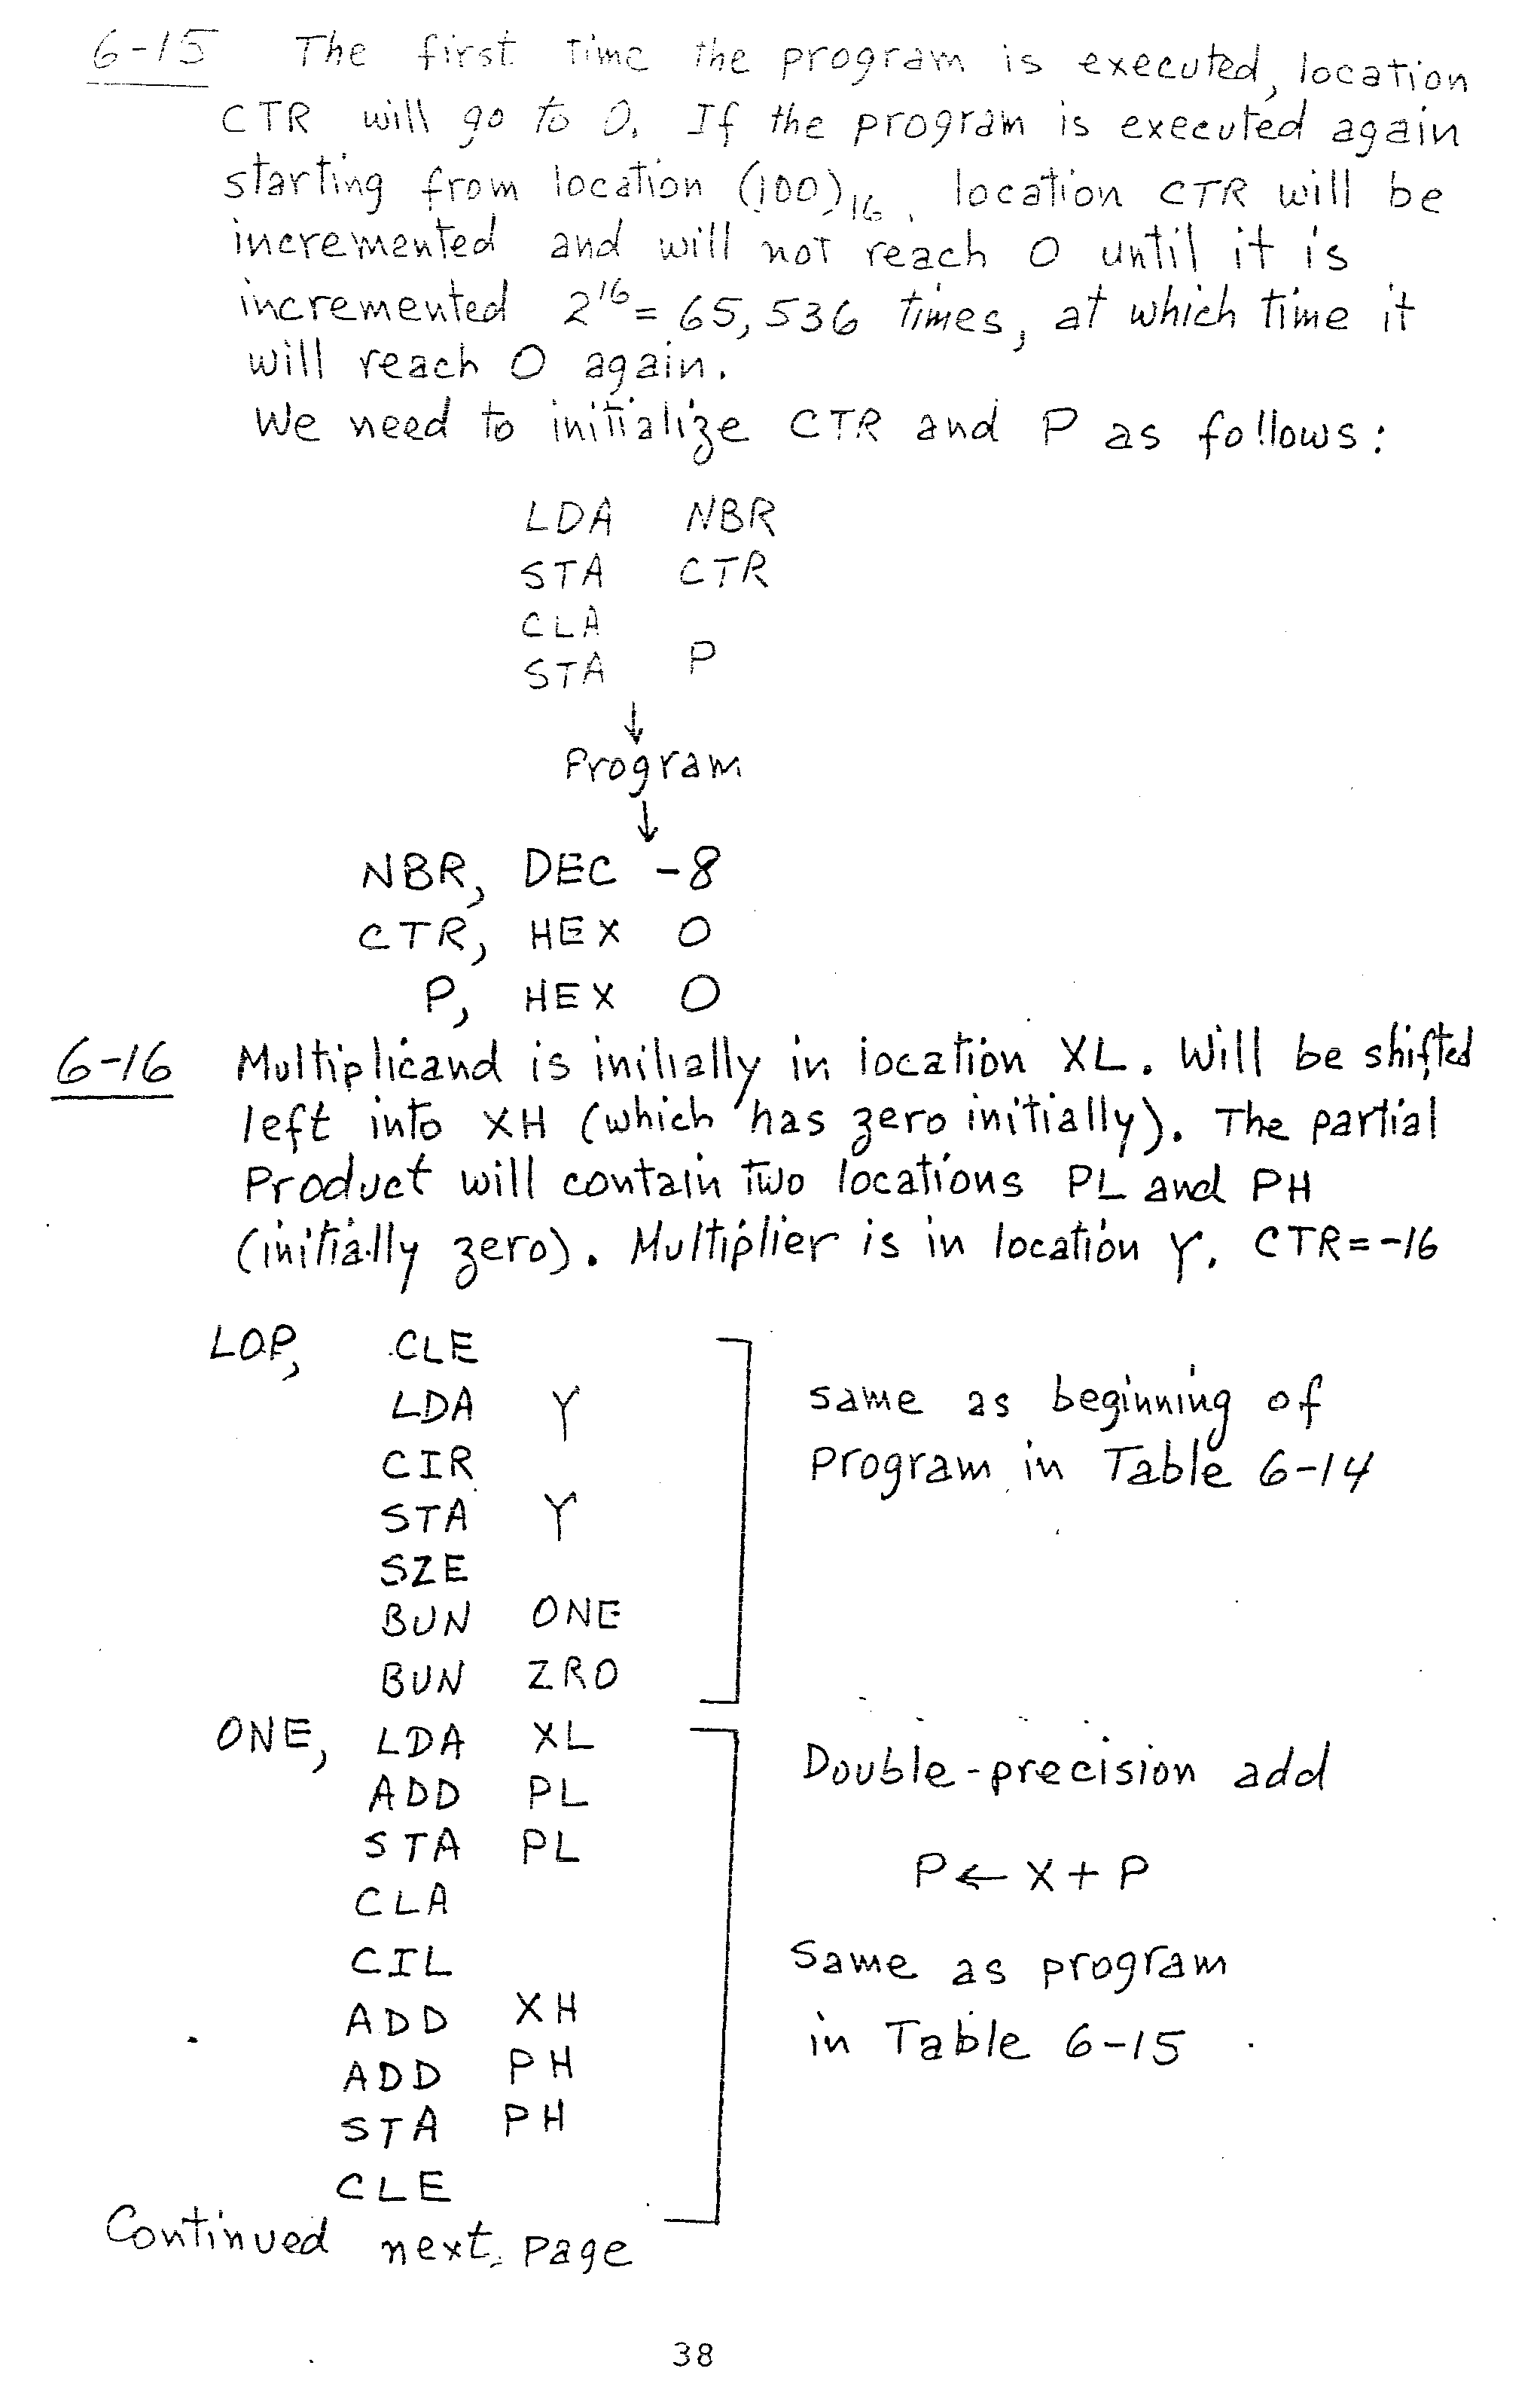 6-15 The first time the program is executed, location
CTR will go to 0. If the program is executed again
starting from location (100)16, location CTR will be
incremented and will not reach 0 until it is
incremented 2^16 = 65,536 times, at which time it
will reach 0 again.
We need to initialize CTR and P as follows:
LDA NBR
STA CTR
CLA
STA P
↓
Program
↓
NBR, DEC -8
CTR, HEX 0
P, HEX 0
6-16 Multiplicand is initially in location XL. Will be shifted
left into XH (which has zero initially). The partial
Product will contain two locations PL and PH
(initially zero). Multiplier is in location Y. CTR=-16
LOP, CLE
LDA Y
CIR
STA Y
SZE
BUN ONE
BUN ZRO
same as beginning of
Program in Table 6-14
ONE, LDA XL
ADD PL
STA PL
CLA
CIL
ADD XH
ADD PH
STA PH
CLE
Double-precision add
P ← X + P
Same as program
in Table 6-15
Continued next page
38